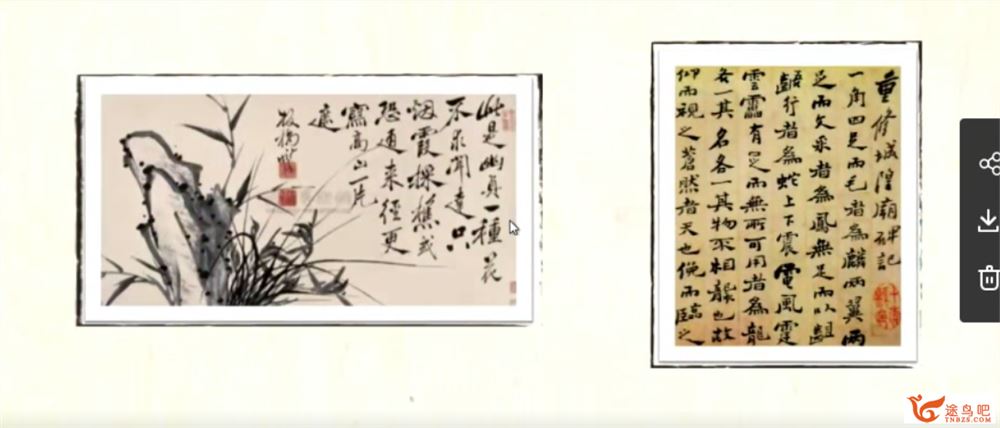 此是幽貞一種花
不求聞達只
烟霞採樵或
恐通來徑更
寫高山一片
遮
板橋燮
重修城隍廟碑記
一角四足而毛者為麟兩翼兩
足而文采者為鳳無足而以齟
齬行者為蛇上下震電風霆
雲靁有足而無所可用者為龍
各一其名各一其物不相襲也故
仰而視之蒼然者天也俛而臨之
途鸟吧
TNBZS.COM